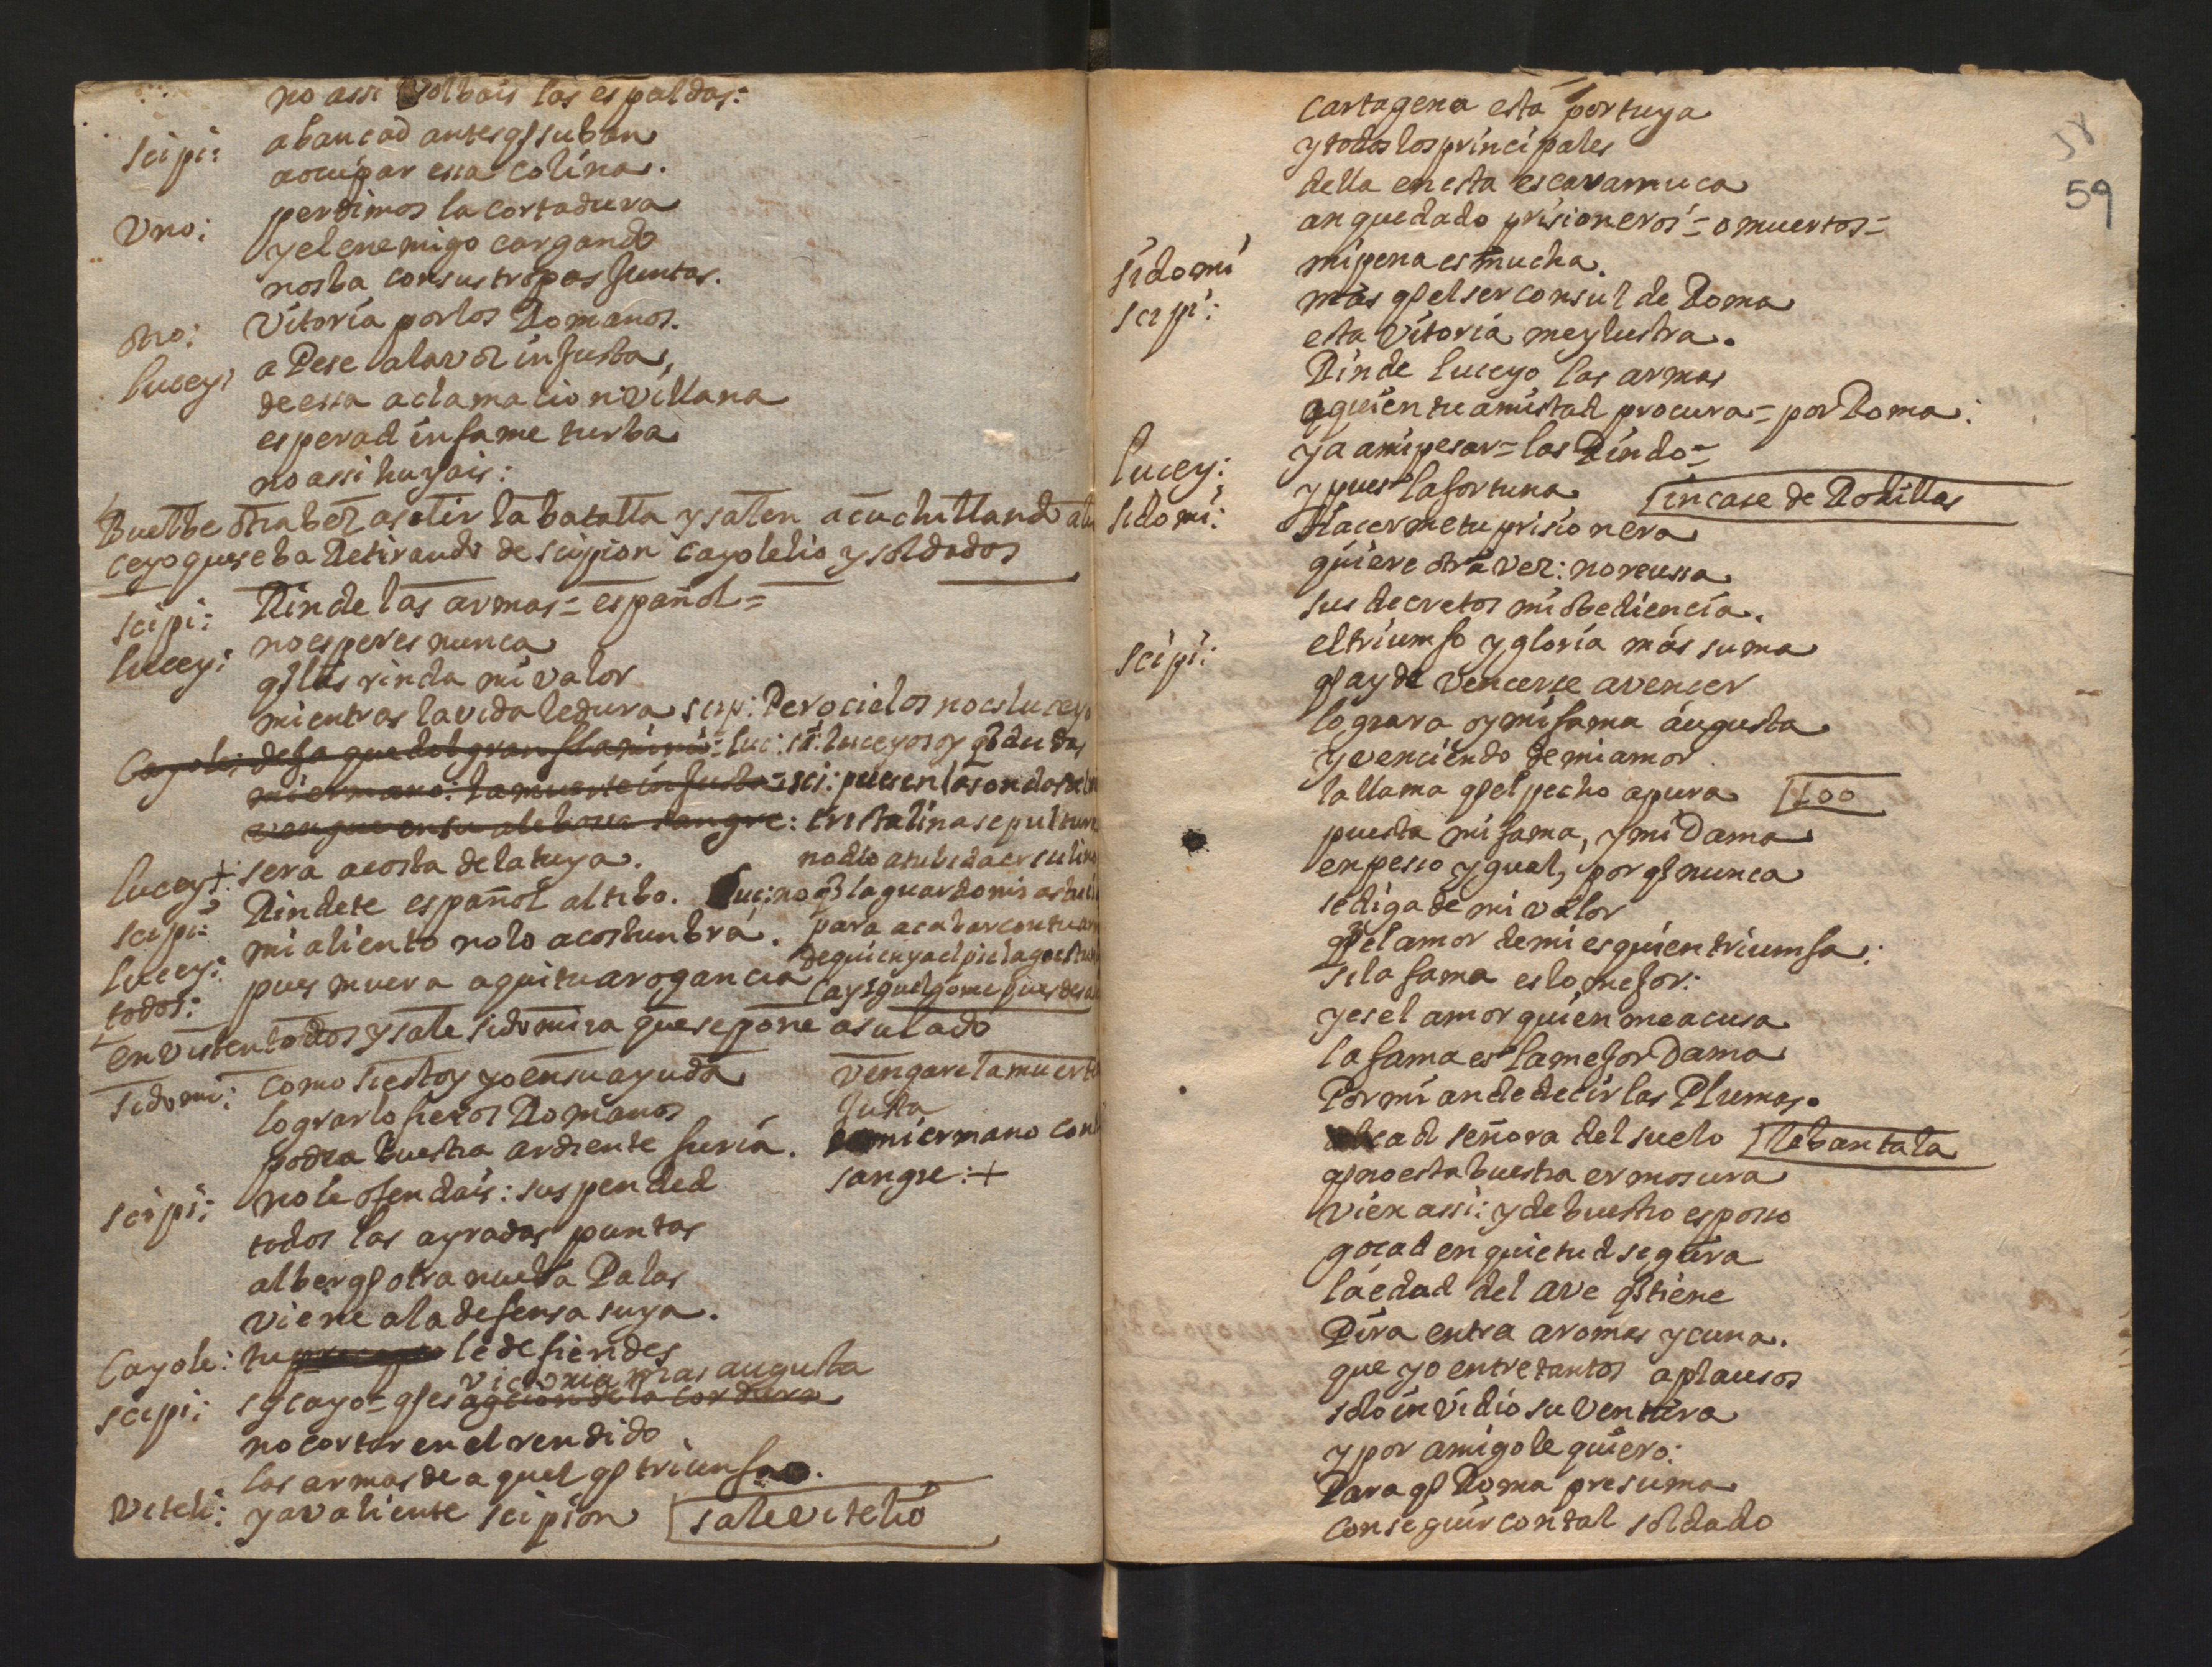 no assi volbais las espaldas:
scipi: abancad antes q̃ suban
a ocupar essa colina.
Vno: perdimos la cortadura
y el enemigo cargando
nos ba con sus tropas Juntas.
otro: Vitoria por los Romanos.
lucey: a Pese a la voz inJusta,
de essa aclamacion villana
esperad infame turba
no assi huyais:
Buelbe otra bez a s la batalla y salen acuchillando a lu
ceyo que se ba Retirando de scipion cayo lelio y soldados
scipi: Rinde las armas = español =
lucey: no esperes nunca
q̃ las rinda mi valor
mientras la vida le dura scip: Pero cielos no es luceyo
Cayole: de la que del gran luc: si: luceyo soy q̃ dudas
mi ermano: la muerte inJusta = sci: pues en las ondas
vengue en su alebossa sangre: cristalina sepultura
no dio a tu bida
lucey: + sera a costa de la tuya.
scipi: Rindete español altibo. luc: no q̃ la guardo mi
lucey: mi aliento no lo acostunbra. para acabar con tu
de quien ya el pielago
todos: pues muera aqui tu arogancia
cay: pues
envisten todos y sale sidomira que se pone a su lado
sidomi: como si estoy yo en su ayuda
vengare la muerte
lograrlo fieros Romanos
Justa
podra buestra ardiente furia.
mi ermano con
scipi: no le ofendais: suspended
sangre: +
todos las ayradas puntas
al ber q̃ otra nueba Palas
viene a la defensa suya.
Cayole: tu le defiendes
victoria mas augusta
scipi: sy cayo = q̃ es accion de la cordura
no cortar en el rendido
las armas de aquel q̃ triunfa.
Viteli: ya valiente scipion sale vitelio
58
59
cartagena esta por tuya
y todos los principales
della en esta escaramuca
an quedado prisioneros = o muertos =
sidomi mi pena es mucha.
scipi: mas q̃ el ser consul de Roma
esta Vitoria me ylustra.
Rinde luceyo las armas
a quien tu amistad procura = por Roma:
lucey: ya a mi pesar = las Rindo =
sidomi: y pues la fortuna fincase de Rodillas
Hacerme tu prisionera
quiere otra vez: no reussa
sus decretos mi obediencia.
scipi: el triumfo y gloria más suma
q̃ ay de vencerse a vencer
lograra oy mi fama augusta
y venciendo de mi amor
la llama q̃ el pecho apura 100
puesta mi fama, y mi Dama
en pesso ygual, por q̃ nunca
se diga de mi valor
q̃ el amor de mi es quien triumfa:
si la fama es lo meJor:
y es el amor quien me acusa
la fama es la meJor Dama
Por mi an de decir las Plumas.
alcad señora del suelo lebantala
q̃ no esta buestra ermosura
vien assi: y de buestro esposso
gocad en quietud segura
la edad del ave q̃ tiene
Pira entra aromas y cuna.
que yo entre tantos aplausos
solo invidio su ventura
y por amigo le quiero:
Para q̃ Roma presuma
conseguir con tal soldado